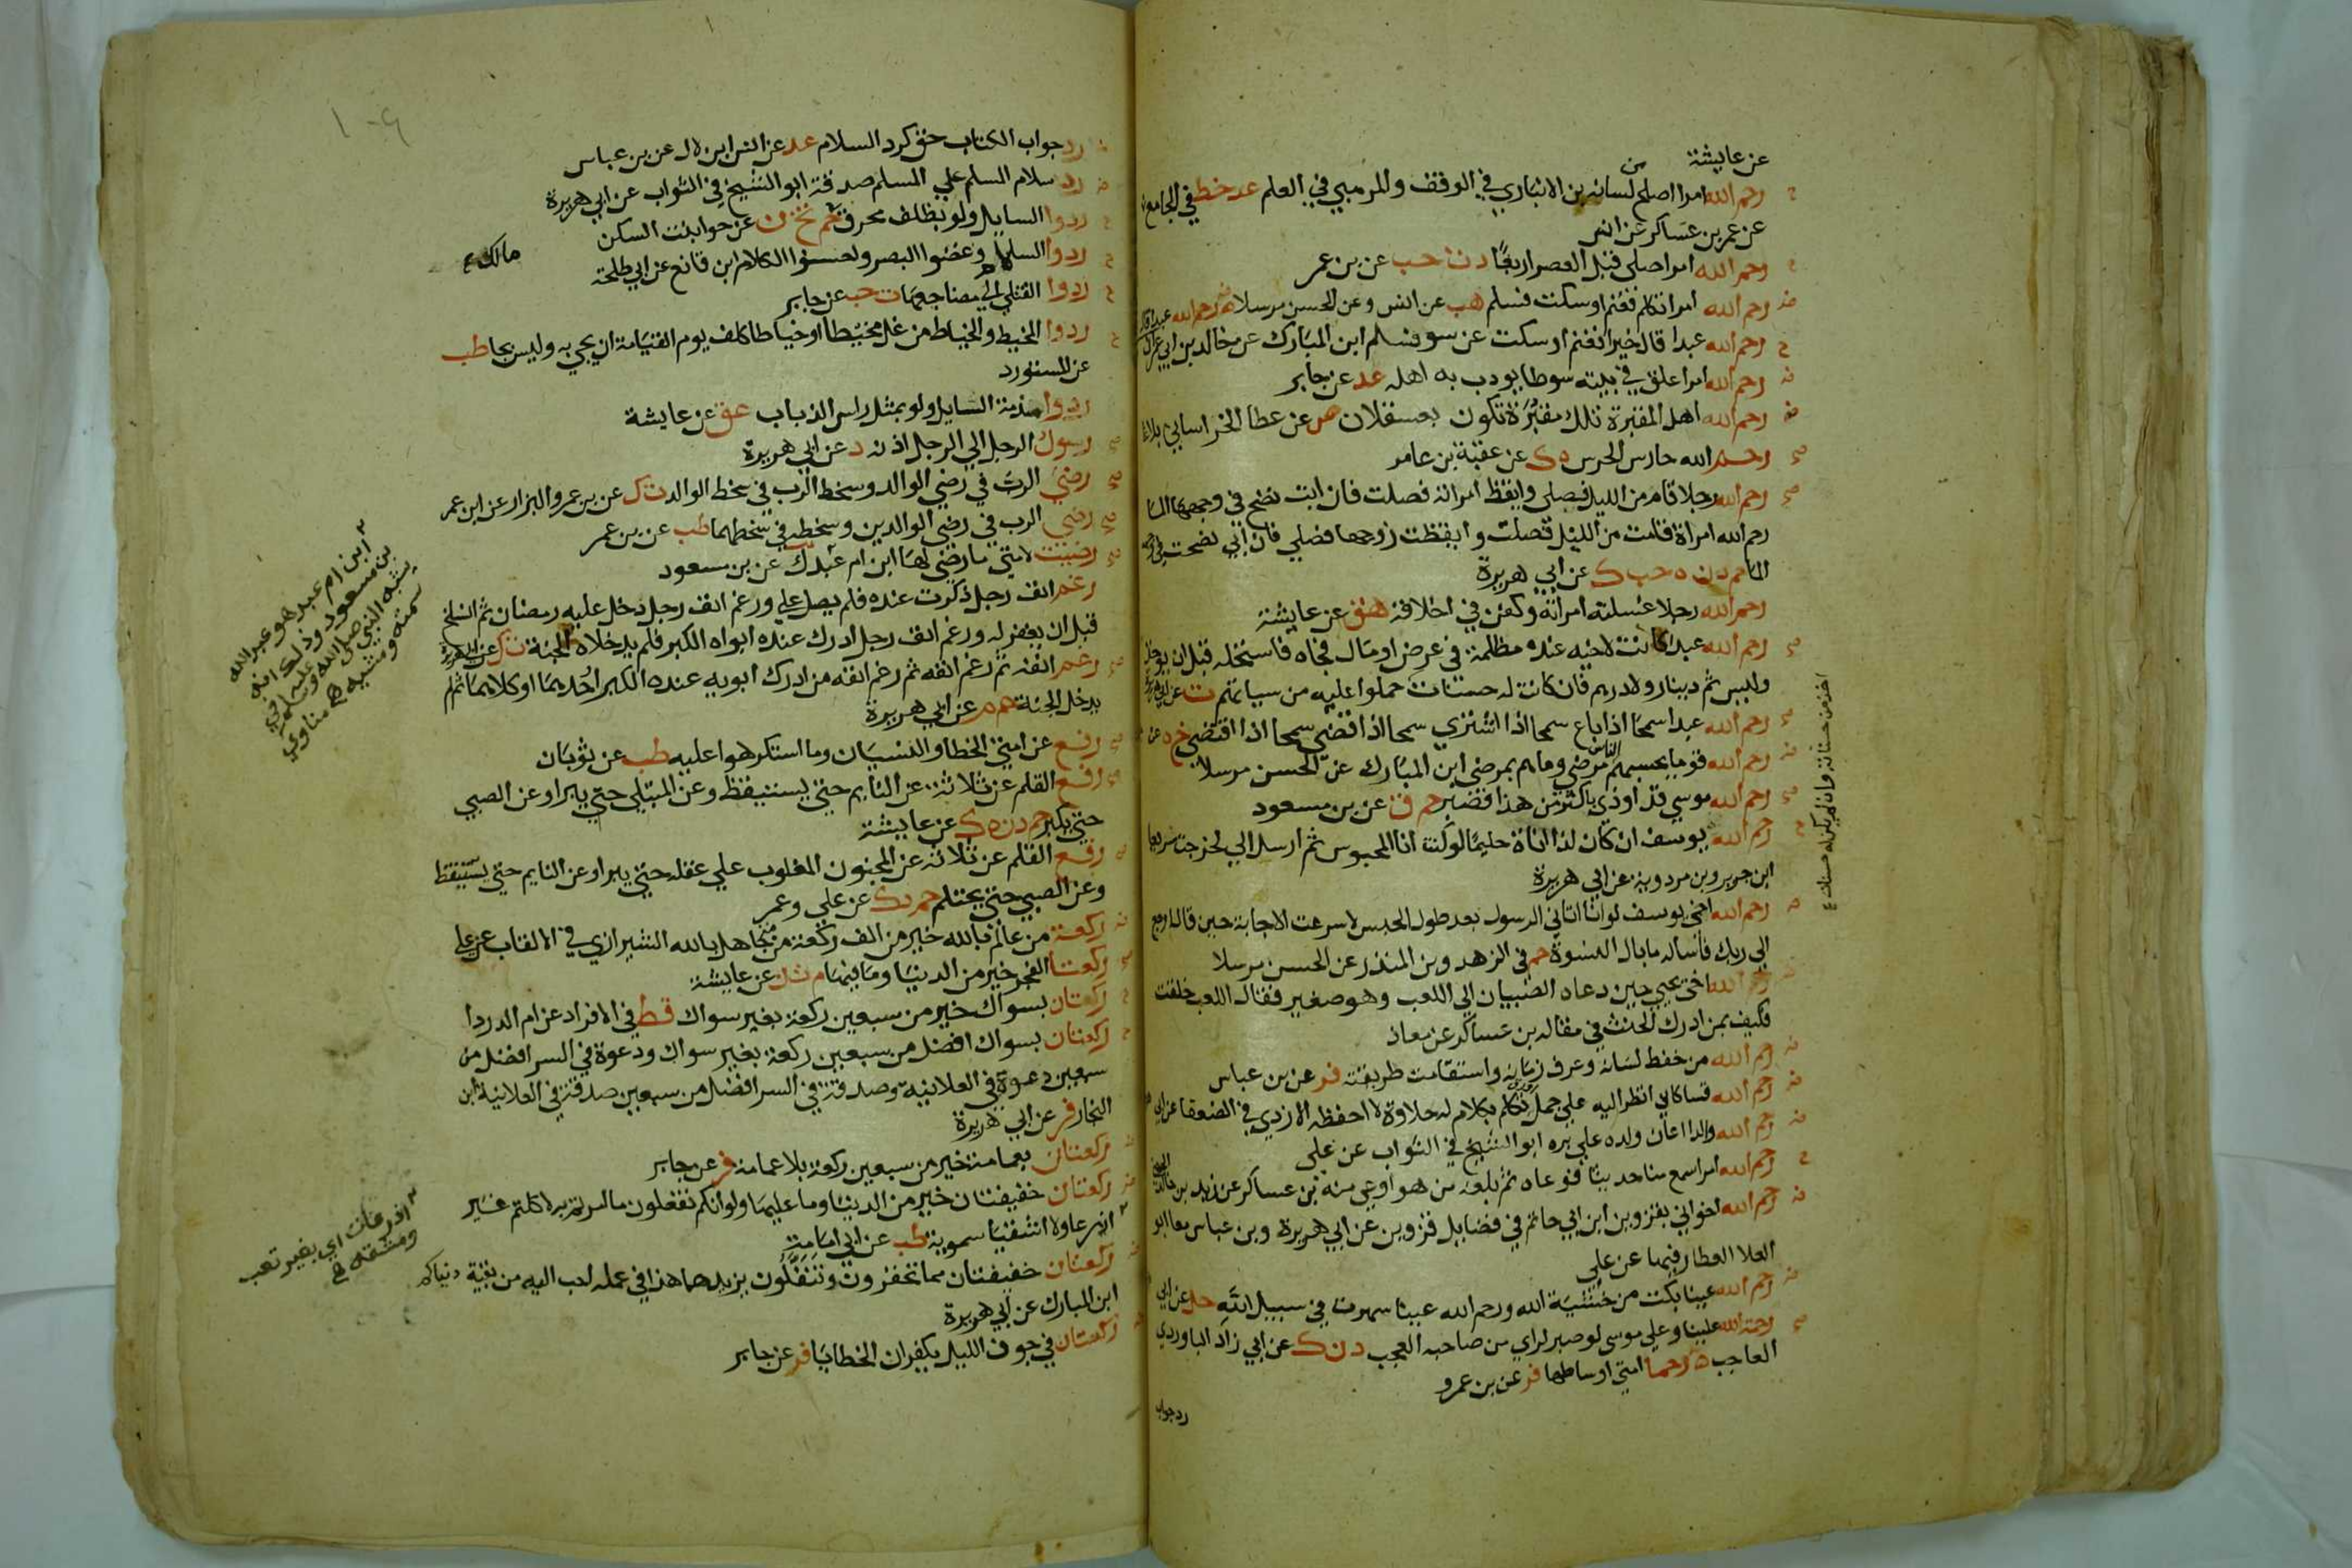 عن عايشة
رحم الله امرا اصلح من لسانه بن الانباري في الوقف والمرهبي في العلم عد خط في الجامع
عن عمر بن عساكر عن انس
رحم الله امرا صلى قبل العصر اربعًا د ت حب عن بن عمر
رحم الله امرا تكلم فغنم او سكت فسلم هب عن انس وعن الحسن مرسلا
رحم الله عبدا قال خيرا فغنم او سكت عن سو فسلم ابن المبارك عن خالد بن ابي عمران
رحم الله امرا علق في بيته سوطا يودب به اهله عد عن جابر
رحم الله اهل المقبرة تلك مقبرة تكون بعسقلان ص عن عطا الخراساني بلاغا
رحم الله حارس الحرس ه ك عن عقبة بن عامر
رحم الله رجلا قام من الليل فصلى وايقظ امراته فصلت فان ابت نضح في وجهها الما
رحم الله امراة قامت من الليل فصلت وايقظت زوجها فصلي فان ابي نضحت في وجهه
الما حم د ن ه حب ك عن ابي هريرة
رحم الله رجلا غسلته امراته وكفن في اخلاقه هق عن عايشة
رحم الله عبدا كانت لاخيه عنده مظلمة في عرض او مال فجاه فاستحله قبل ان يوخذ
وليس ثم دينار ولا درهم فان كانت له حسنات حملوا عليه من سياتهم ت عن ابي هريرة
رحم الله عبدا سمحا اذا باع سمحا اذا اشتري سمحا اذا قضي سمحا اذا اقتضي خ ه عن
رحم الله قوما يحسبهم الناس مرضي وما هم بمرضي ابن المبارك عن الحسن مرسلا
رحم الله موسي قد اوذي باكثر من هذا فصبر حم ق عن بن مسعود
رحم الله يوسف ان كان لذا اناة حليما لو كنت انا المحبوس ثم ارسل الي لخرجت سريعا
ابن جرير وبن مردويه عن ابي هريرة
رحم الله اخي يوسف لو انا اتاني الرسول بعد طول الحبس لاسرعت الاجابة حين قال ارجع
الي ربك فاساله ما بال النسوة حم في الزهد وبن المنذر عن الحسن مرسلا
رحم الله اخي يحيي حين دعاه الصبيان الي اللعب وهو صغير فقال اللعب خلقت
فكيف بمن ادرك الحنث في مقاله بن عساكر عن معاذ
رحم الله من حفظ لسانه وعرف زمانه واستقامت طريقته فر عن بن عباس
رحم الله قسا كاني انظر اليه علي جمل تكلم بكلام له حلاوة لا احفظه الازدي في الضعفا عن ابي
رحم الله والدا اعان ولده علي بره ابو الشيخ في الثواب عن علي
رحم الله امرا سمع منا حديثا فوعاه ثم بلغه من هو اوعي منه بن عساكر عن زيد بن خالد الجهني
رحم الله اخواني بقزوين ابن ابي حاتم في فضايل قزوين عن ابي هريرة وبن عباس معا ابو
العلا العطار فيها عن علي
رحم الله عينا بكت من خشية الله ورحم الله عينا سهرت في سبيل الله حل عن ابي
رحمة الله علينا وعلي موسي لو صبر لراي من صاحبه العجب د ن ك عن ابي زاد الباوردي
العاجب ه رحما امتي اوساطها فر عن بن عمرو
رد جواب
اخذ من حسناته وان لم يكن له حسنات
رد جواب الكتاب حق كرد السلام عد عن انس ابن لال عن بن عباس
رد سلام المسلم علي المسلم صدقة ابو الشيخ في الثواب عن ابي هريرة
ردوا السايل ولو بظلف محرق حم تخ ن عن حوا بنت السكن
ردوا السلام وغضوا البصر واحسنوا الكلام ابن قانع عن ابي طلحة
ردوا القتلي الي مضاجعها ت حب عن جابر
ردوا المخيط والخياط من غل مخيطا او خياطا كلف يوم القيامة ان يجي به وليس بجا طب
عن المستورد
ردوا مذمة السايل ولو بمثل راس الذباب عق عن عايشة
رسول الرجل الي الرجل اذنه د عن ابي هريرة
رضي الرب في رضي الوالد وسخط الرب في سخط الوالد ت ك عن بن عمرو البزار عن ابن عمر
رضي الرب في رضي الوالدين وسخطه في سخطهما طب عن بن عمر
رضيت لامتي ما رضي لها ابن ام عبد ك عن بن مسعود
رغم انف رجل ذكرت عنده فلم يصل علي ورغم انف رجل دخل عليه رمضان ثم انسلخ
قبل ان يغفر له ورغم انف رجل ادرك عنده ابواه الكبر فلم يدخلاه الجنة ت ك عن ابي هريرة
رغم انفه ثم رغم انفه ثم رغم انفه من ادرك ابويه عنده الكبر احدهما او كلاهما ثم لم
يدخل الجنة حم م عن ابي هريرة
رفع عن امتي الخطا والنسيان وما استكرهوا عليه طب عن ثوبان
رفع القلم عن ثلاثة عن النايم حتي يستيقظ وعن المبتلي حتي يبرا وعن الصبي
حتي يكبر حم د ن ه ك عن عايشة
رفع القلم عن ثلاثة عن المجنون المغلوب علي عقله حتي يبرا وعن النايم حتي يستيقظ
وعن الصبي حتي يحتلم حم د ك عن علي وعمر
ركعة من عالم بالله خير من الف ركعة من متجاهل بالله الشيرازي في الالقاب عن علي
ركعتا الفجر خير من الدنيا وما فيها م ت ن عن عايشة
ركعتان بسواك خير من سبعين ركعة بغير سواك قط في الافراد عن ام الدردا
ركعتان بسواك افضل من سبعين ركعة بغير سواك ودعوة في السر افضل من
سبعين دعوة في العلانية وصدقة في السر افضل من سبعين صدقة في العلانية ابن
النجار فر عن ابي هريرة
ركعتان بعمامة خير من سبعين ركعة بلا عمامة فر عن جابر
ركعتان خفيفتان خير من الدنيا وما عليها ولو انكم تفعلون ما امرتم به لاكلتم غير
اذرعا ولا اشقيا سموية طب عن ابي امامة
ركعتان خفيفتان مما تحقرون وتنفلون يزيدهما هذا في عمله احب اليه من بقية دنياكم
ابن المبارك عن ابي هريرة
ركعتان في جوف الليل يكفران الخطايا فر عن جابر
مالك
ابن ام عبد هو عبد الله
بن مسعود وذلك انه
يشبه النبي صلي الله عليه وسلم في
سمته ومشيه مناوي
اذرعات اي بغير تعب
ومشقة
١٠٩